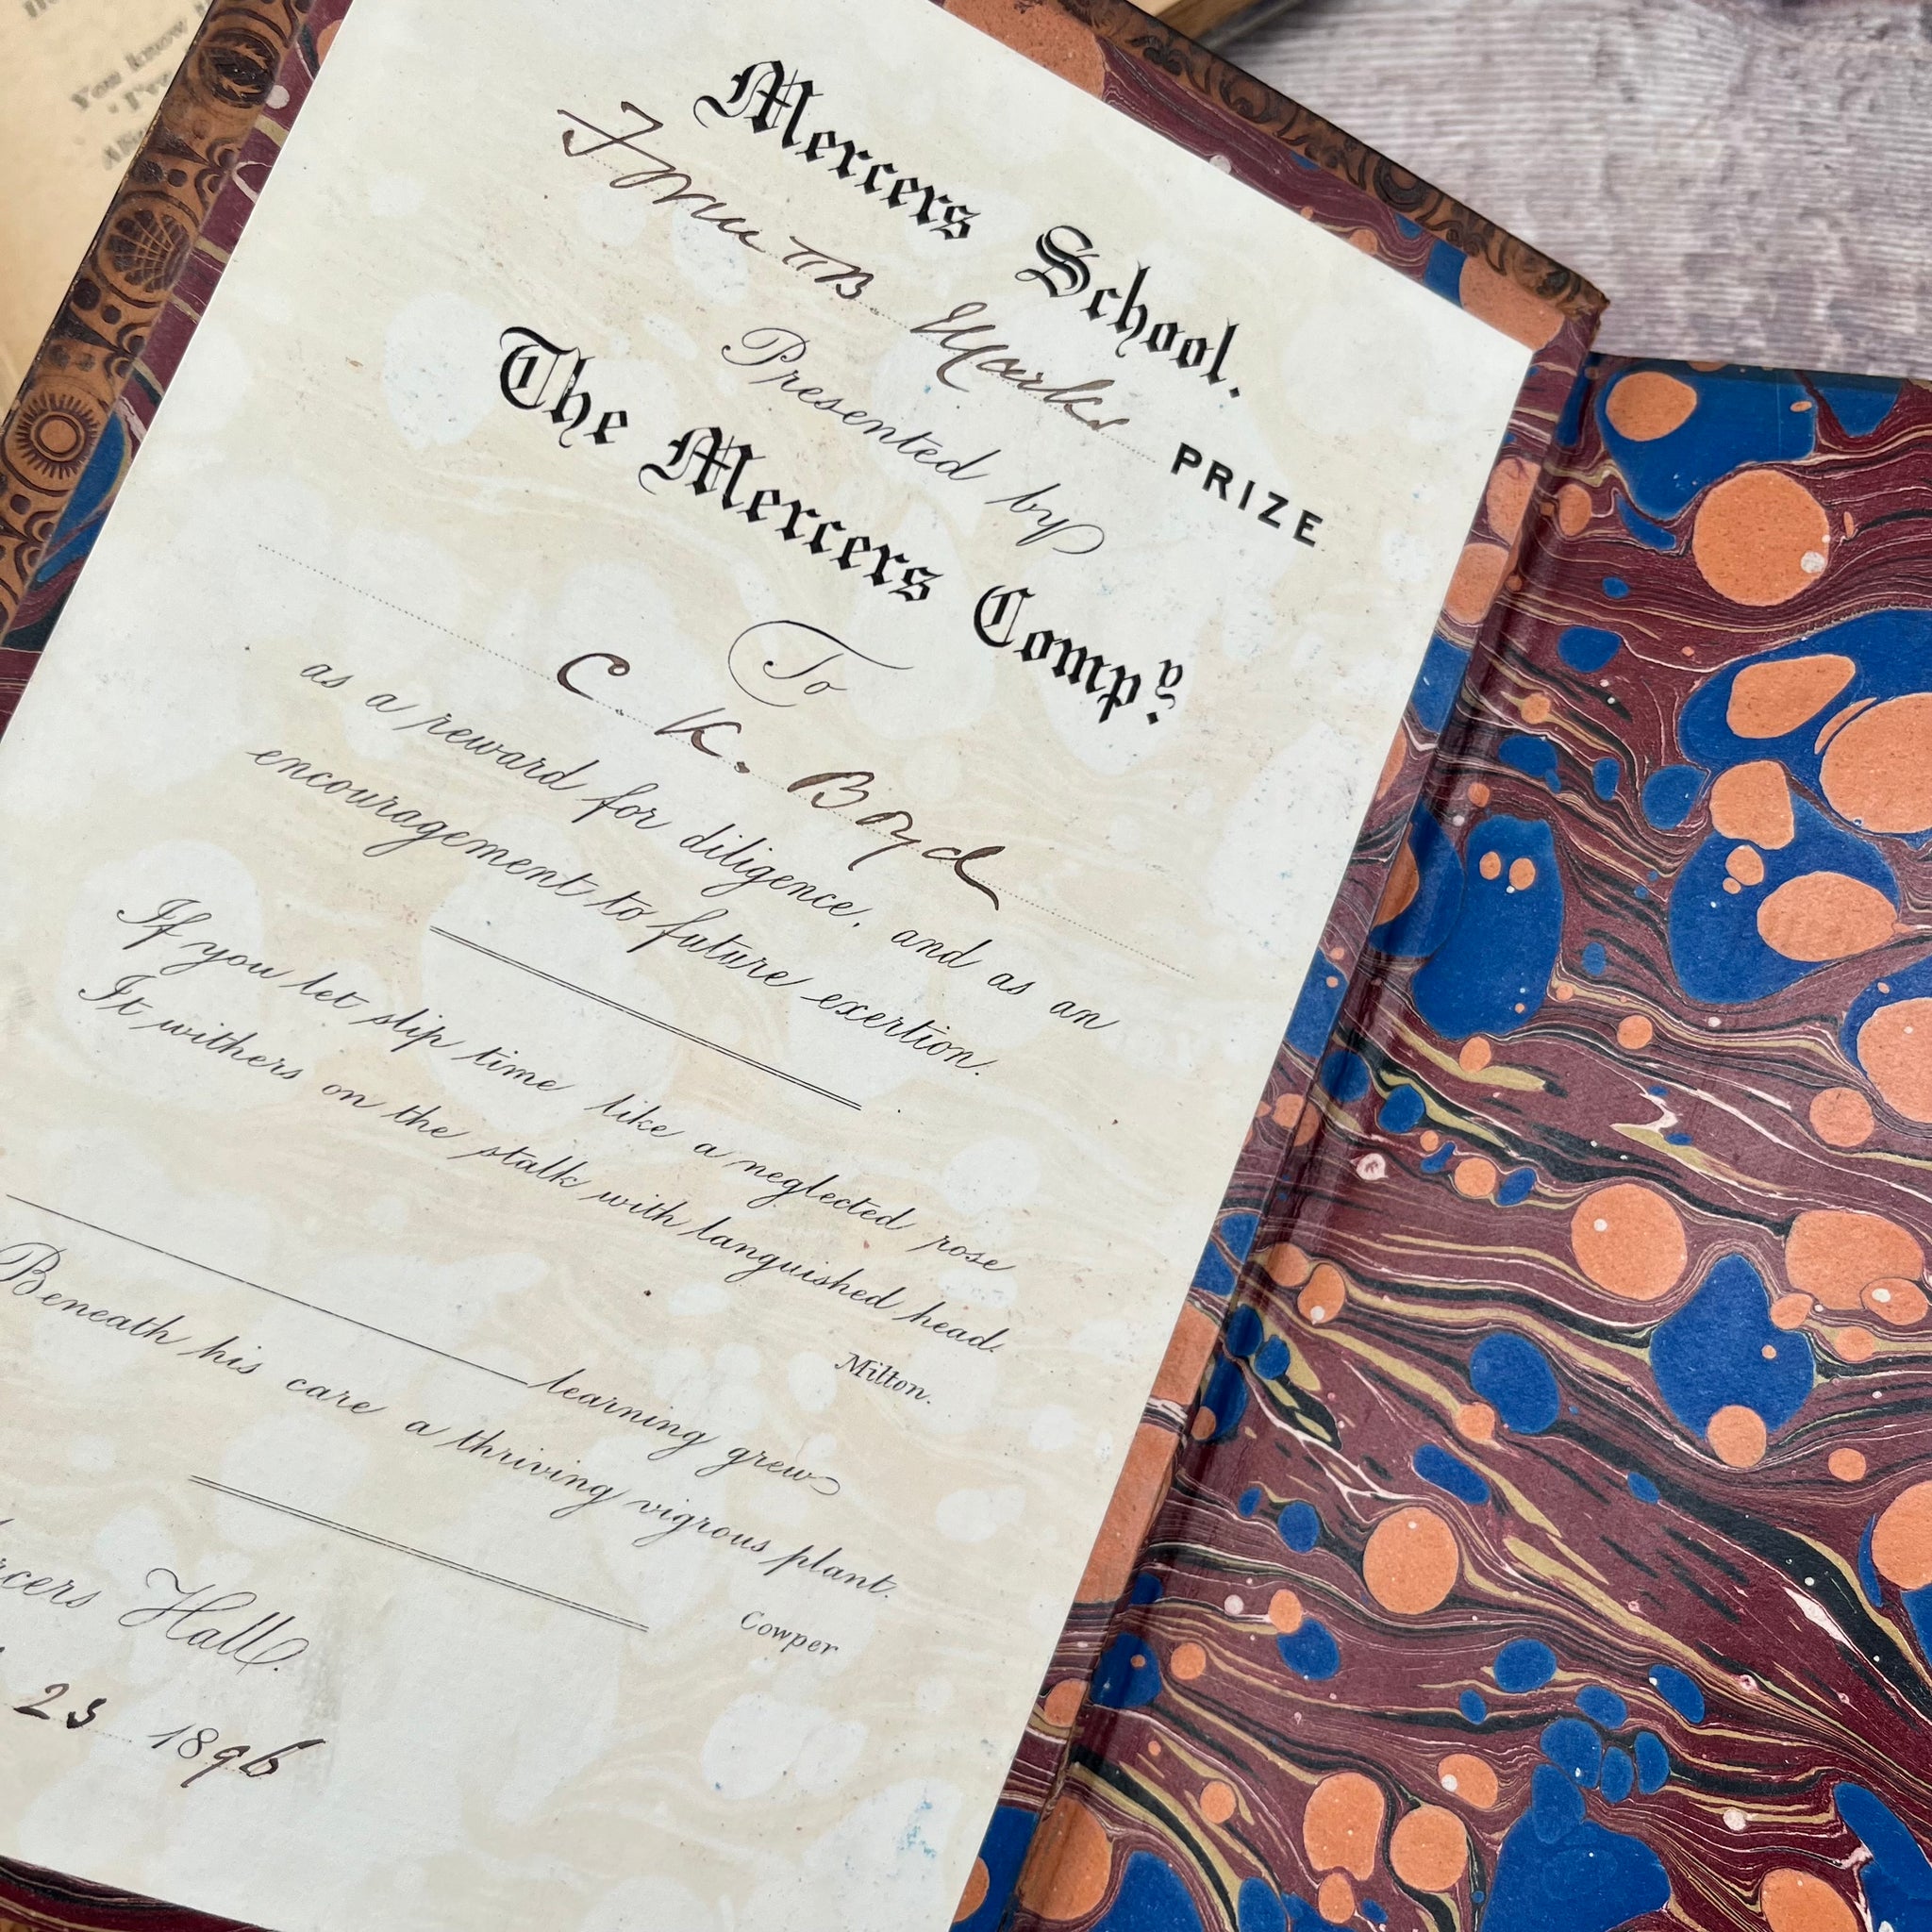 You know
Mercers School.
Form III B. Marks PRIZE
Presented by
The Mercers Compy.
To
C. K. Boyd
as a reward for diligence, and as an
encouragement to future exertion.
If you let slip time like a neglected rose
It withers on the stalk with languished head.
Milton.
learning grew
Beneath his care a thriving vigrous plant.
Cowper
Hall.
23 1896